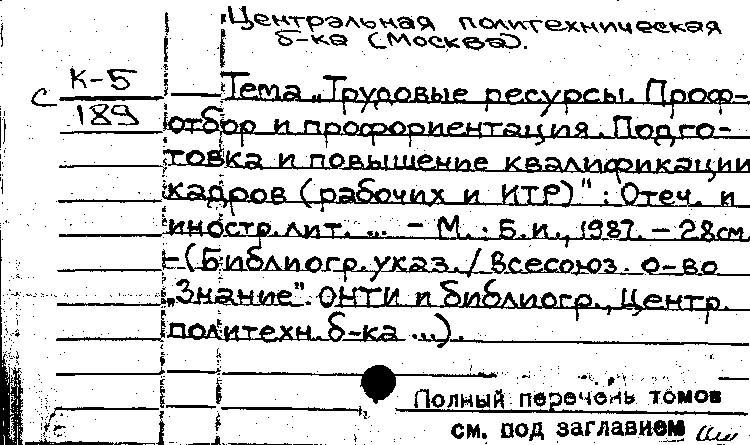 Центральная политехническая
б-ка (Москва).
К-5
с
189
Тема "Трудовые ресурсы. Проф-
отбор и профориентация. Подго-
товка и повышение квалификации
кадров (рабочих и ИТР)" : Отеч. и
иностр. лит. ... - М. : Б. и., 1987. - 28см.
-(Библиогр. указ. / Всесоюз. о-во
"Знание". ОНТИ п библиогр., Центр.
политехн. б-ка ...).
Полный перечень томов
см. под заглавием